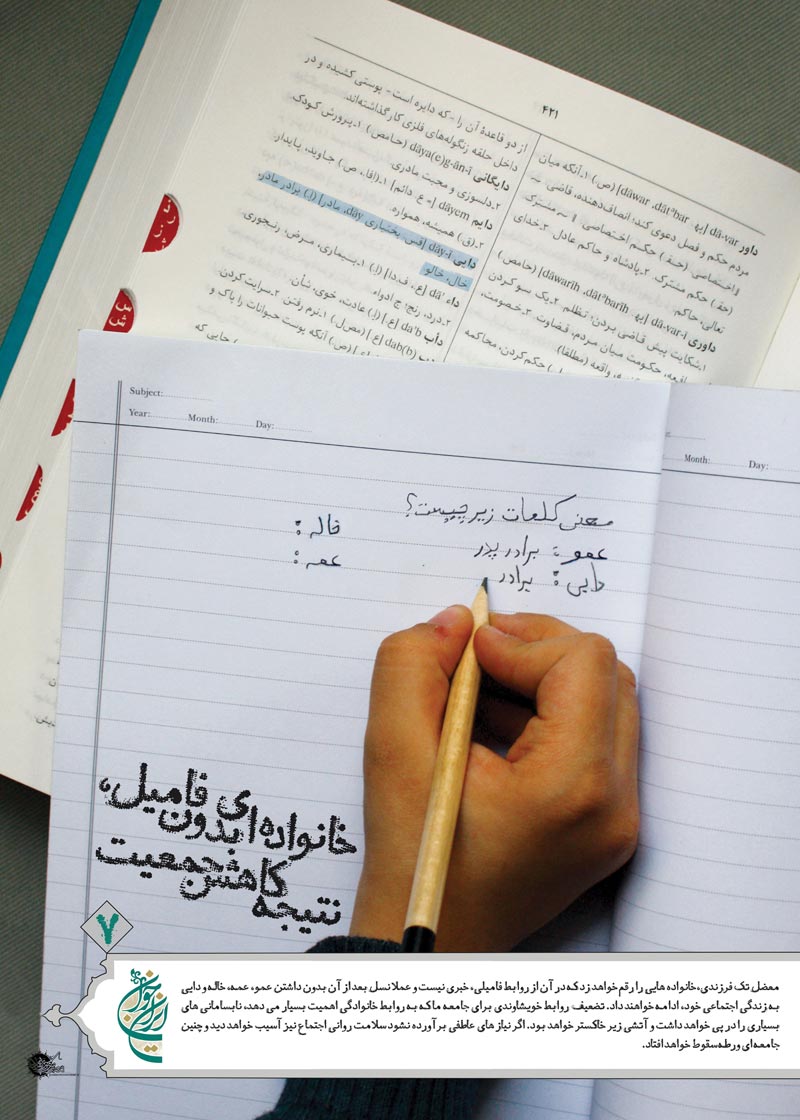 ۴۲۱
داور dā-var [په‍ dāwar, dāt^əbar] (ص) ۱ـ آنکه میان
مردم حکم و فصل دعوی کند؛ انصاف‌دهنده، قاضی
اختصاصی (حق‍) حکم اختصاصی. || ~ مشترک
(حق‍) حکم مشترک. ۲ـ پادشاه و حاکم عادل. ۳ـ خدای
تعالی؛ حاکم.
داوری dā-var-ī [په‍ dāwarīh, dāt^əbarīh] (حامص)
۱ـ شکایت پیش قاضی بردن؛ تظلم. ۲ـ یک سو کردن
مرافعه، حکومت میان مردم، قضاوت. ۳ـ خصومت،
واقعه (مطلقا)
حکم کردن، محاکمه
از دو قاعدهٔ آن را - که دایره است - پوستی کشیده و در
داخل حلقه زنگوله‌های فلزی کار گذاشته‌اند.
دایگانی dāya(e)g-ān-ī (حامص) ۱ـ پرورش کودک.
۲ـ دلسوزی و محبت مادری.
دایم dāyem [= ع. دائم] ۱ـ (افا.، ص) جاوید، پایدار.
۲ـ (ق) همیشه، همواره.
دایی dāy-ī [قس. بختیاری dāy، مادر] (اِ) برادر مادر،
خال، خالو
داء dā' [ع. ف.: دا] (اِ) ۱ـ بیماری، مرض، رنجوری.
۲ـ درد، رنج؛ ج ادواء.
دأب da'b [ع] (اِ) عادت، خوی، شأن.
dab(b) [ع] (مص‌ل) ۱ـ نرم رفتن. ۲ـ سرایت کردن.
(ص) آنکه پوست حیوانات را پاک و
جایی که
Subject:
Year: Month: Day:
Month: Day:
معنی کلمات زیر چیست؟
عمو: برادر پدر
دایی: برادر
خاله:
عمه:
خانواده‌ای بدون فامیل،
نتیجه کاهش جمعیت
۷
ایران جوان
معضل تک فرزندی، خانواده هایی را رقم خواهد زد که در آن از روابط فامیلی، خبری نیست و عملا نسل بعد از آن بدون داشتن عمو، عمه، خاله و دایی
به زندگی اجتماعی خود، ادامه خواهند داد. تضعیف روابط خویشاوندی برای جامعه ما که به روابط خانوادگی اهمیت بسیار می دهد، نابسامانی های
بسیاری را در پی خواهد داشت و آتشی زیر خاکستر خواهد بود. اگر نیاز های عاطفی برآورده نشود سلامت روانی اجتماع نیز آسیب خواهد دید و چنین
جامعه‌ای ورطه سقوط خواهد افتاد.